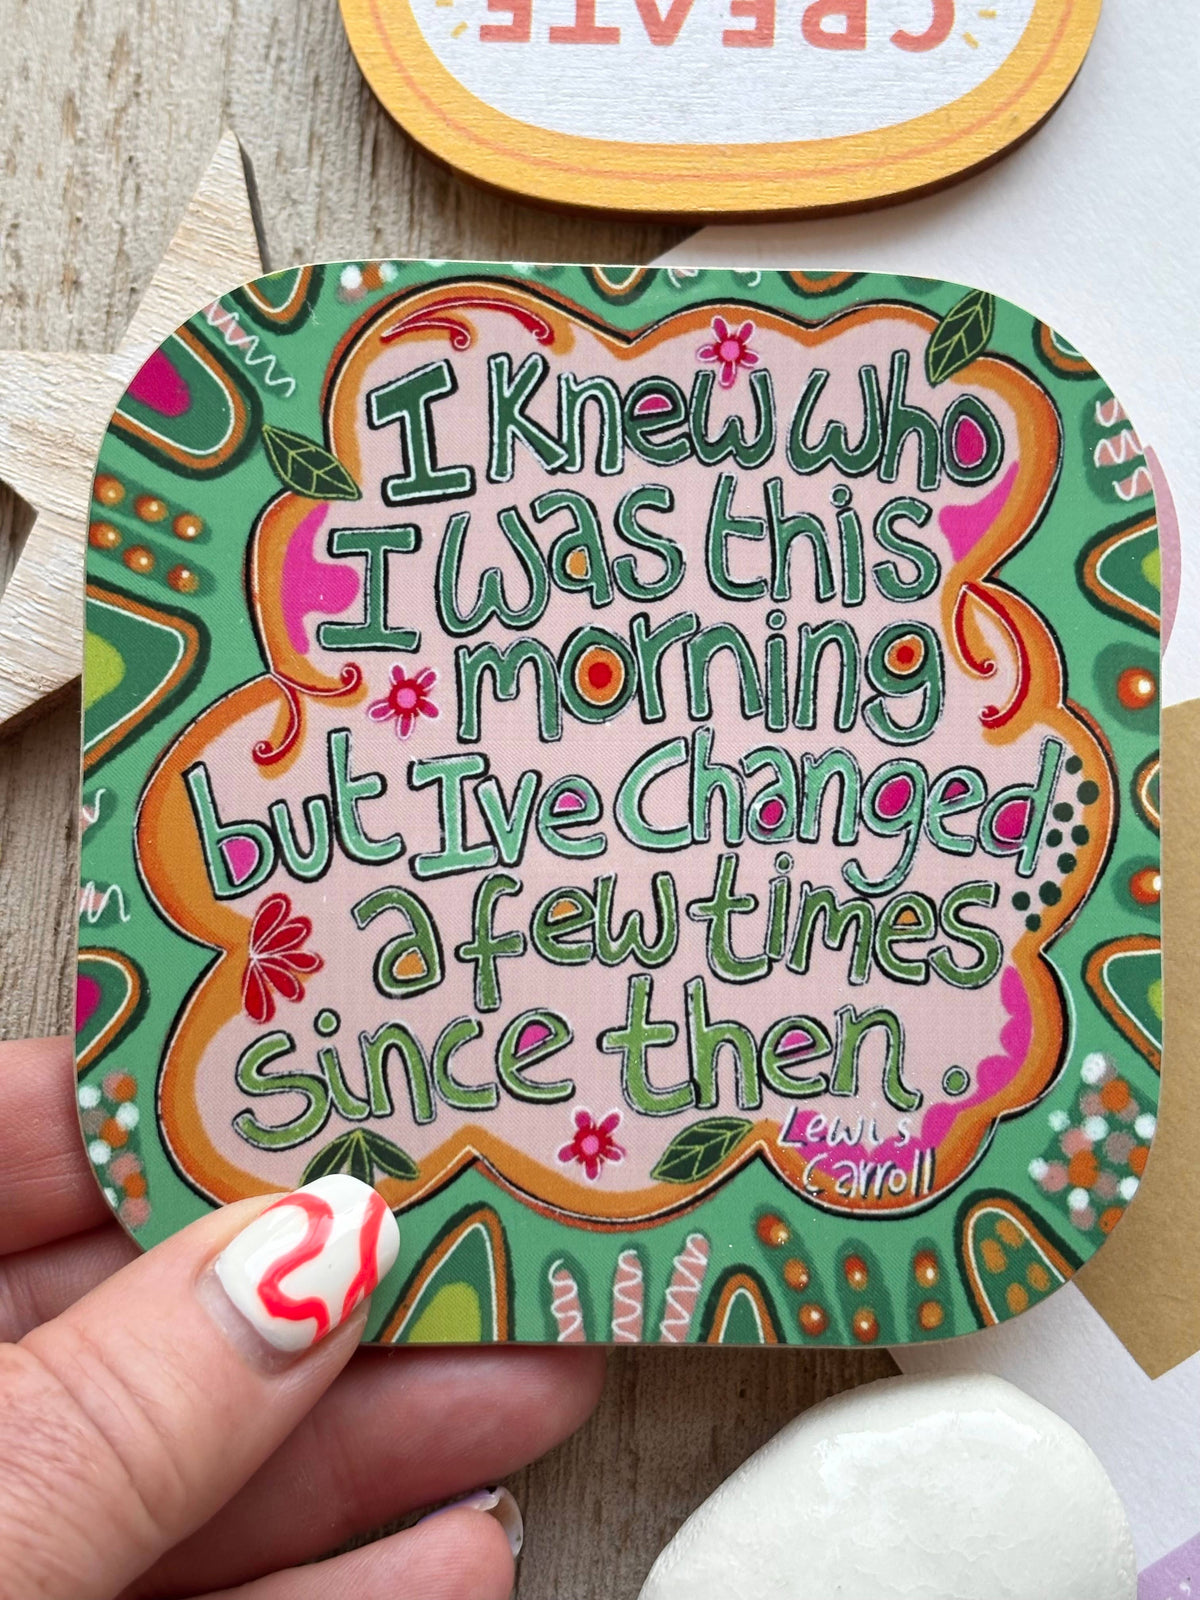 CREATE
I Knew who
I was this
morning
but Ive Changed
a few times
since then.
Lewis
Carroll